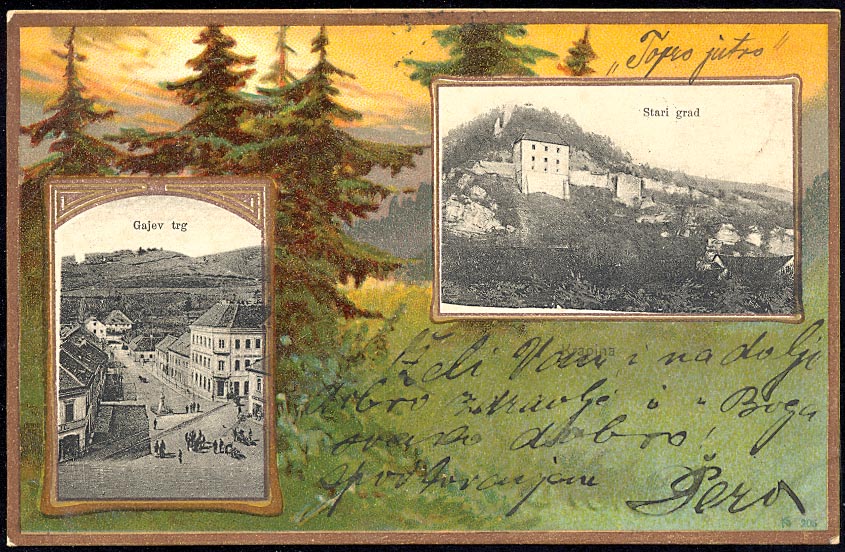 „Topro jutro“
Stari grad
Gajev trg
Krapina
Želi Vam i nadalje
dobro zdravlje i u Boga
svako dobro!
spoštovanjem
Pero
205